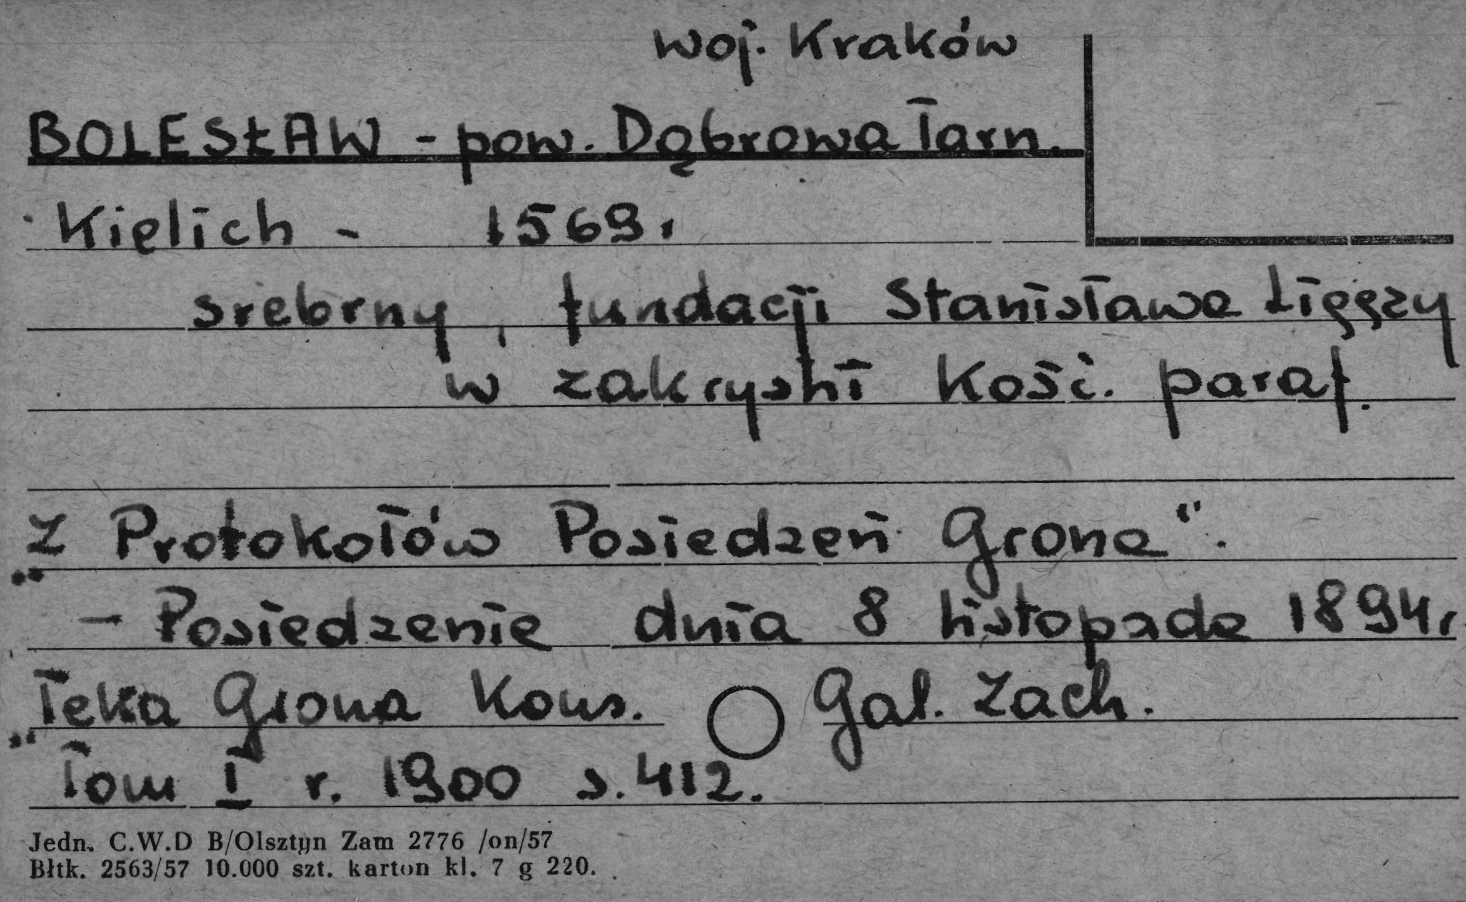 woj. Kraków
BOLESŁAW - pow. Dąbrowa Tarn.
Kielich - 1569r
srebrny, fundacji Stanisława Ligęzy
w zakrystii kość. paraf.
„Z Protokołów Posiedzeń Grona".
- Posiedzenie dnia 8 listopada 1894r
„Teka Grona Kons. Gal. Zach.
Tom I r. 1900 s. 412.
Jedn. C.W.D B/Olsztyn Zam 2776 /on/57
Błtk. 2563/57 10.000 szt. karton kl. 7 g 220.